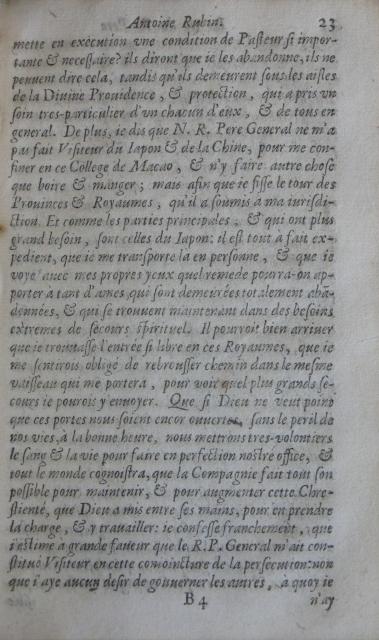 Antoine Rubin. 23
mette en execution vne condition de Pasteur si impor-
tante & necessaire? ils diront que ie les abandonne, ils ne
peuuent dire cela, tandis qu'ils demeurent sous les aisles
de la Diuine Prouidence, & protection, qui a pris vn
soin tres-particulier d'vn chacun d'eux, & de tous en
general. De plus, ie dis que N. R. Pere General ne m'a
pas fait Visiteur du Iapon & de la Chine, pour me con-
finer en ce College de Macao, & n'y faire autre chose
que boire & manger; mais afin que ie fisse le tour des
Prouinces & Royaumes, qu'il a soumis a ma iurisdi-
ction. Et comme les parties principales, & qui ont plus
grand besoin, sont celles du Iapon; il est tout a fait ex-
pedient, que ie me transporte la en personne, & que ie
voye auec mes propres yeux quel remede pourra-on ap-
porter à tant d'ames, qui sont demeurées totalement abā-
données, & qui se trouuent maintenant dans des besoins
extremes de secours spirituel. Il pourroit bien arriuer
que ie trouuasse l'entrée si libre en ces Royaumes, que ie
me sentirois obligé de rebrousser chemin dans le mesme
vaisseau qui me portera, pour voir quel plus grand se-
cours ie pourois y enuoyer. Que si Dieu ne veut point
que ces portes nous soient encor ouuertes, sans le peril de
nos vies, à la bonne heure, nous mettrons tres-volontiers
le sang & la vie pour faire en perfection nostre office, &
tout le monde cognoistra, que la Compagnie fait tout son
possible pour maintenir, & pour augmenter cette Chre-
stienté, que Dieu a mis entre ses mains, pour en prendre
la charge, & y trauailler: ie confesse franchement, que
i'estime a grande faueur que le R. P. General m'ait con-
stitué Visiteur en cette conioincture de la persecution: non
que i'aye aucun desir de gouuerner les autres, à quoy ie
B 4 n'ay